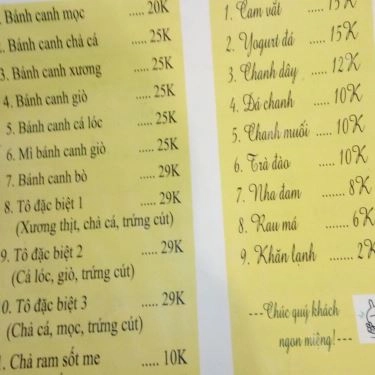 . Bánh canh mọc ..... 20K
. Bánh canh chả cá ..... 25K
3. Bánh canh xương ..... 25K
4. Bánh canh giò ..... 25K
5. Bánh canh cá lóc ..... 25K
6. Mì bánh canh giò ..... 25K
7. Bánh canh bò ..... 29K
8. Tô đặc biệt 1 ..... 29K
(Xương thịt, chả cá, trứng cút)
9. Tô đặc biệt 2 ..... 29K
(Cá lóc, giò, trứng cút)
0. Tô đặc biệt 3 ..... 29K
(Chả cá, mọc, trứng cút)
. Chả ram sốt me ..... 10K
1. Cam vắt ..... 15K
2. Yogurt đá ..... 15K
3. Chanh dây ..... 12K
4. Đá chanh ..... 10K
5. Chanh muối ..... 10K
6. Trà đào ..... 10K
7. Nha đam ..... 8K
8. Rau má ..... 6K
9. Khăn lạnh ..... 2K
---Chúc quý khách
ngon miệng!---